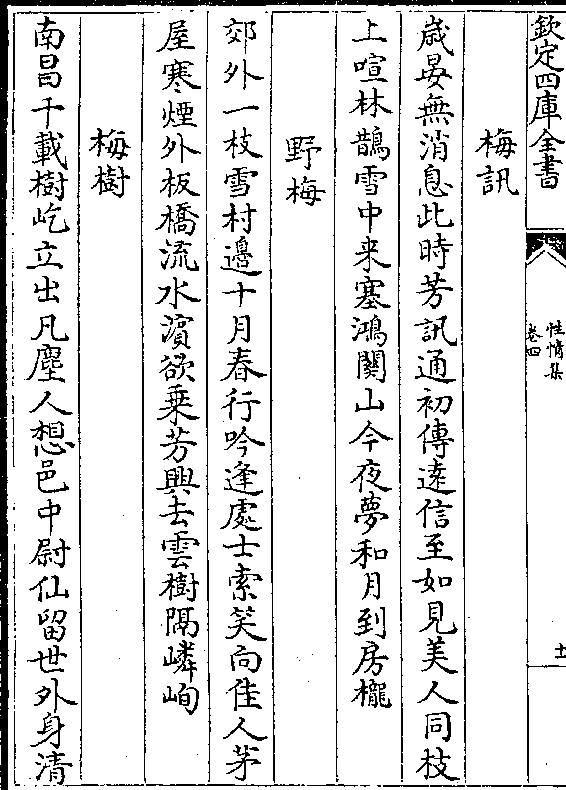 欽定四庫全書
性情集
卷四
十
梅訊
歳晏無消息此時芳訊通初傳逺信至如見美人同枝
上喧林鵲雪中来塞鴻關山今夜夢和月到房櫳
野梅
郊外一枝雪村邉十月春行吟逢處士索笑向佳人茅
屋寒煙外板橋流水濵欲乗芳興去雲樹隔嶙峋
梅樹
南昌千載樹屹立出凡塵人想邑中尉仙留世外身清